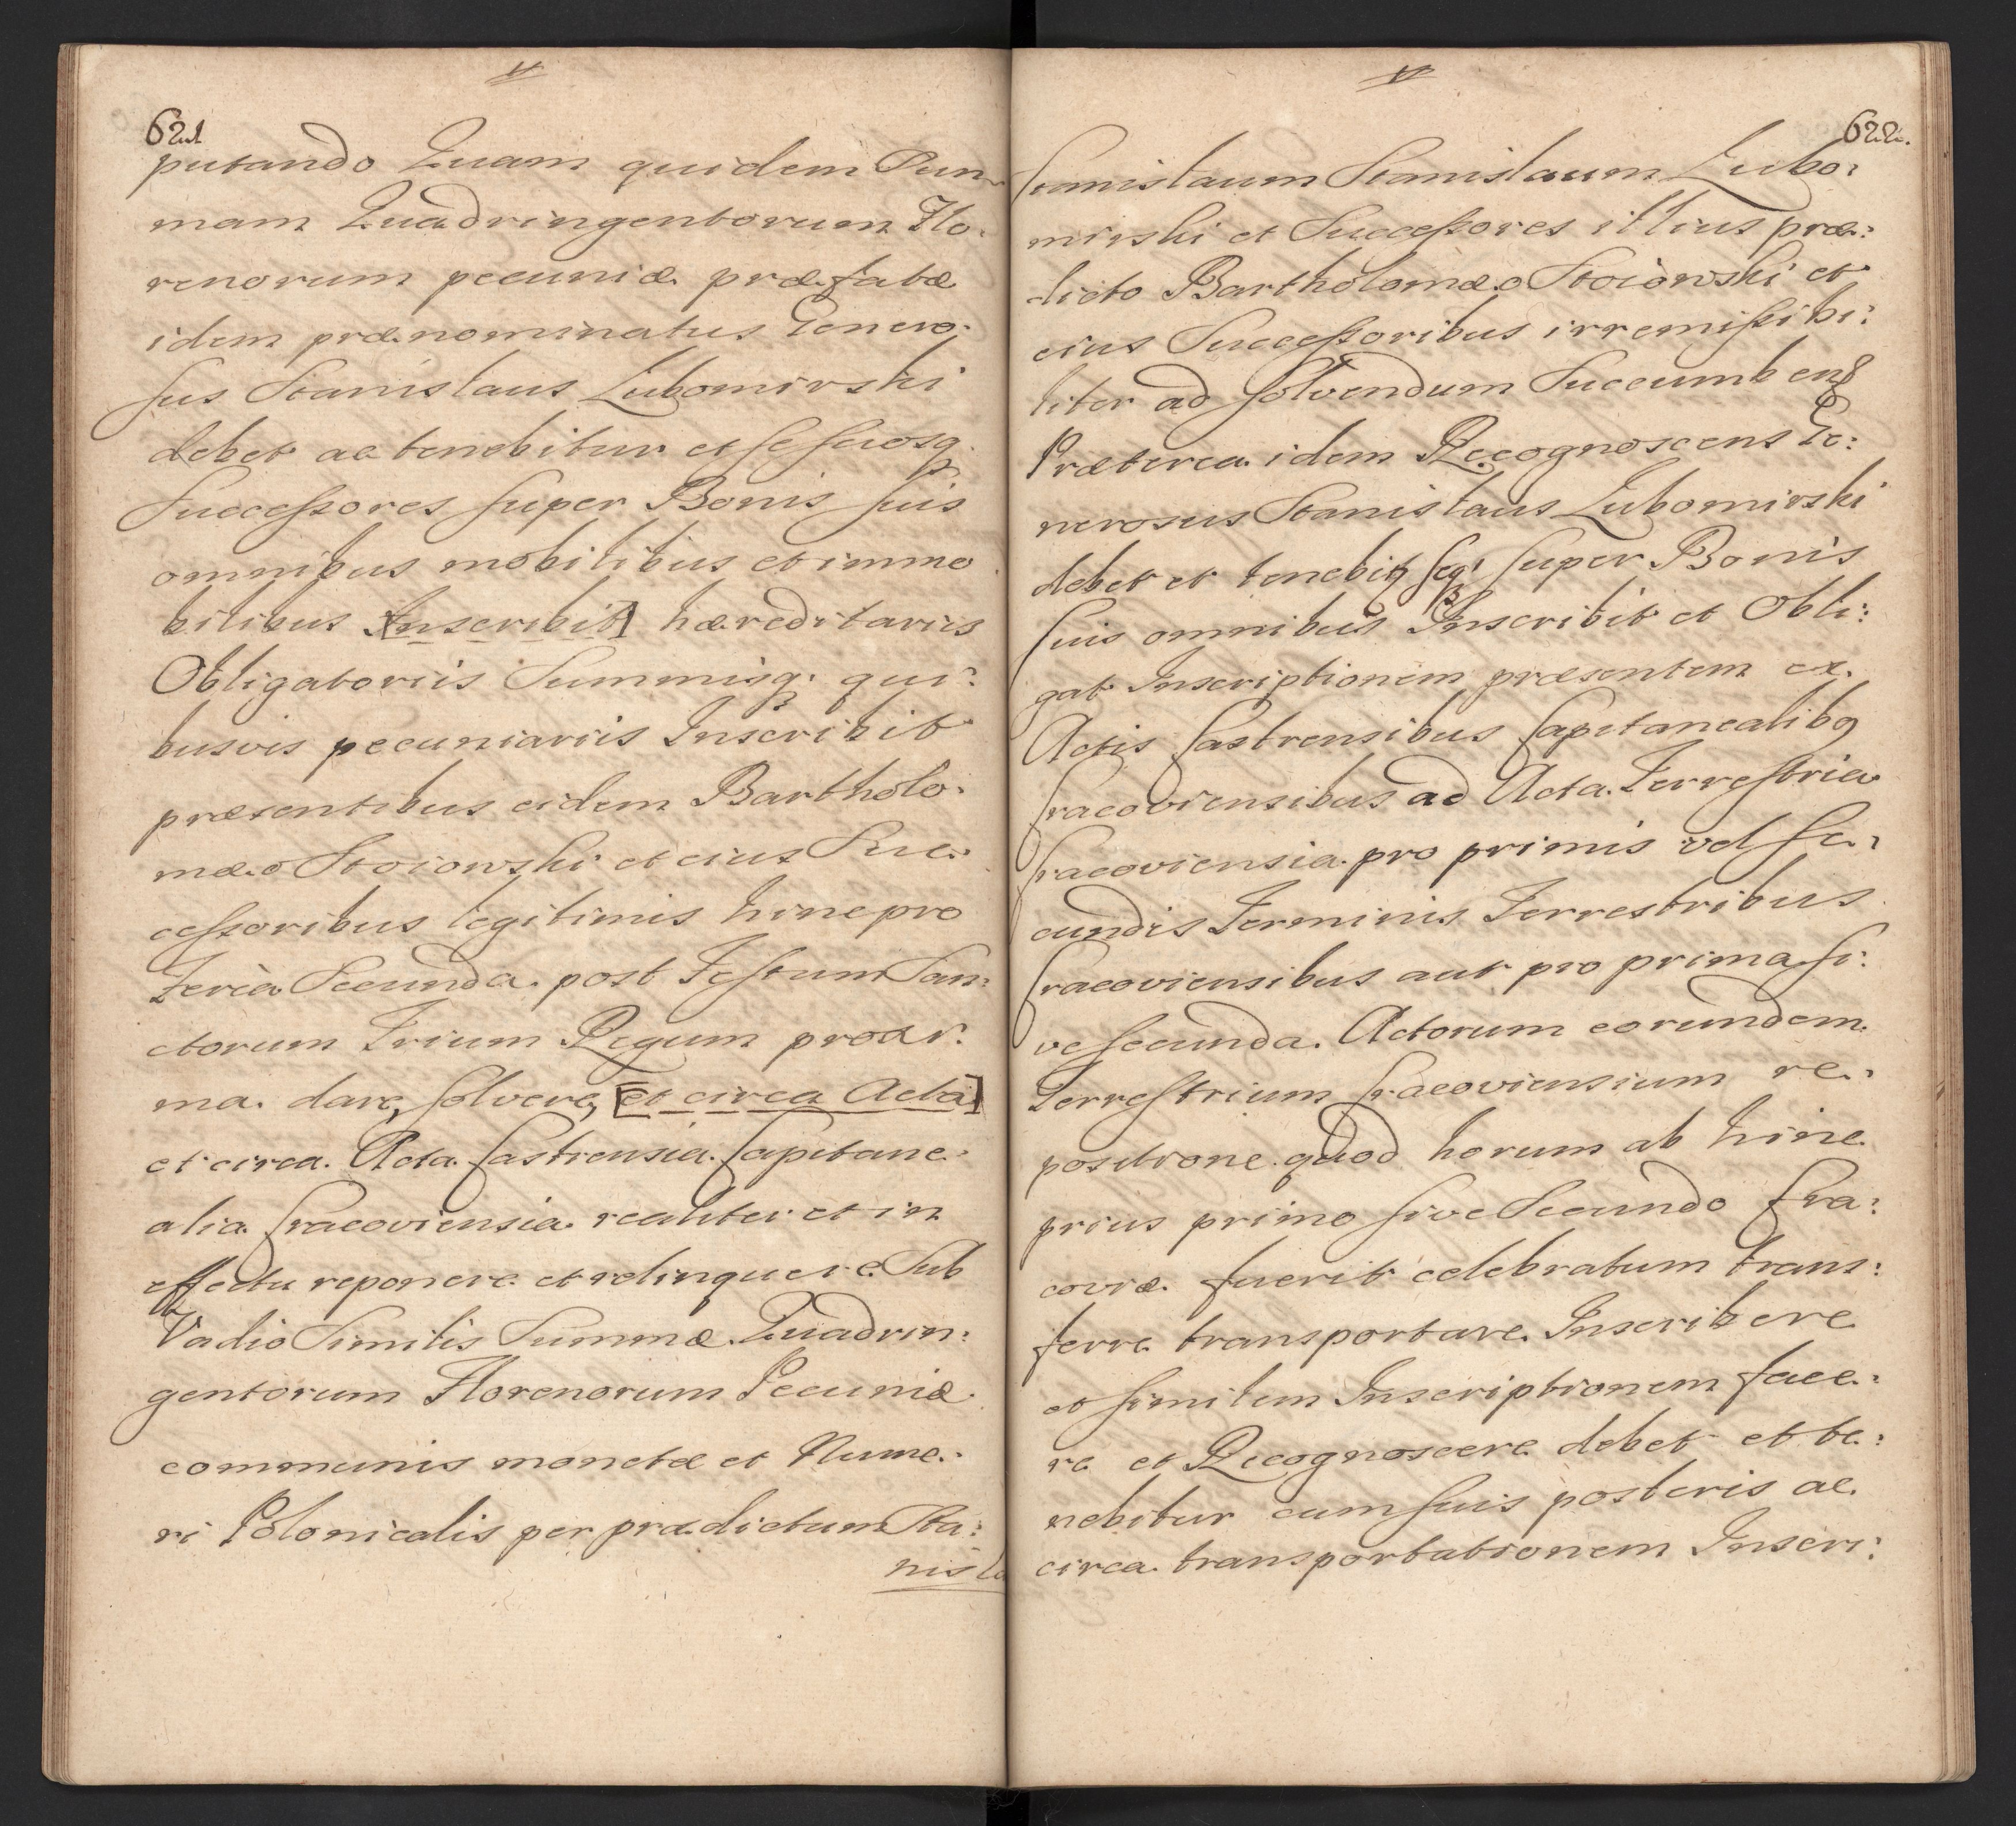 621
putando Quam quidem Sum
mam Quadringentorum Flo:
renorum pecuniæ præfatæ
idem prænominatus Genero:
sus Stanislaus Lubomirski
debet ac tenebitur et se suosq.
Successores super Bonis suis
omnibus mobilibus et immo
bilibus [Inscribit] hæreditariis
Obligatoriis Summisq. qui:
busvis pecuniariis Inscribit
præsentibus eidem Bartholo:
mæo Stoiowski et eius Suc:
cessoribus legitimis hinc pro
Feria Secunda post Festum San:
ctorum Trium Regum proxi:
ma dare, solvere, [et circa Acta]
et circa Acta Castrensia Capitane:
alia Cracoviensia realiter et in
effectu reponere et relinquere Sub
Vadio Similis Summæ Quadrin:
gentorum Florenorum Pecuniæ
communis monetæ et Nume:
ri Polonicalis per prædictum Sta:
nisla
622.
Stanislaum Stanislaum Lubo:
mirski et Successores illius præ:
dicto Bartholomæo Stoiowski et
eius Successoribus irremissibi:
liter ad solvendum Succumbens
Præterea idem Recognoscens Ge:
nerosus Stanislaus Lubomirski
debet et tenebit seq. super Bonis
suis omnibus Inscribit et Obli:
gat Inscriptionem præsentem ex
Actis Castrensibus Capitanealibus
Cracoviensibus ad Acta Terrestria
Cracoviensia pro primis vel se:
cundis Terminis Terrestribus
Cracoviensibus aut pro prima si:
ve secunda Actorum eorundem
Terrestrium Cracoviensium re:
positione quod horum ab hinc
prius primo sive Secundo Cra:
coviæ fuerit celebratum trans:
ferre transportare Inscribere
et similem Inscriptionem face:
re et Recognoscere debet et te:
nebitur cum suis posteris ac
circa transportationem Inscri: